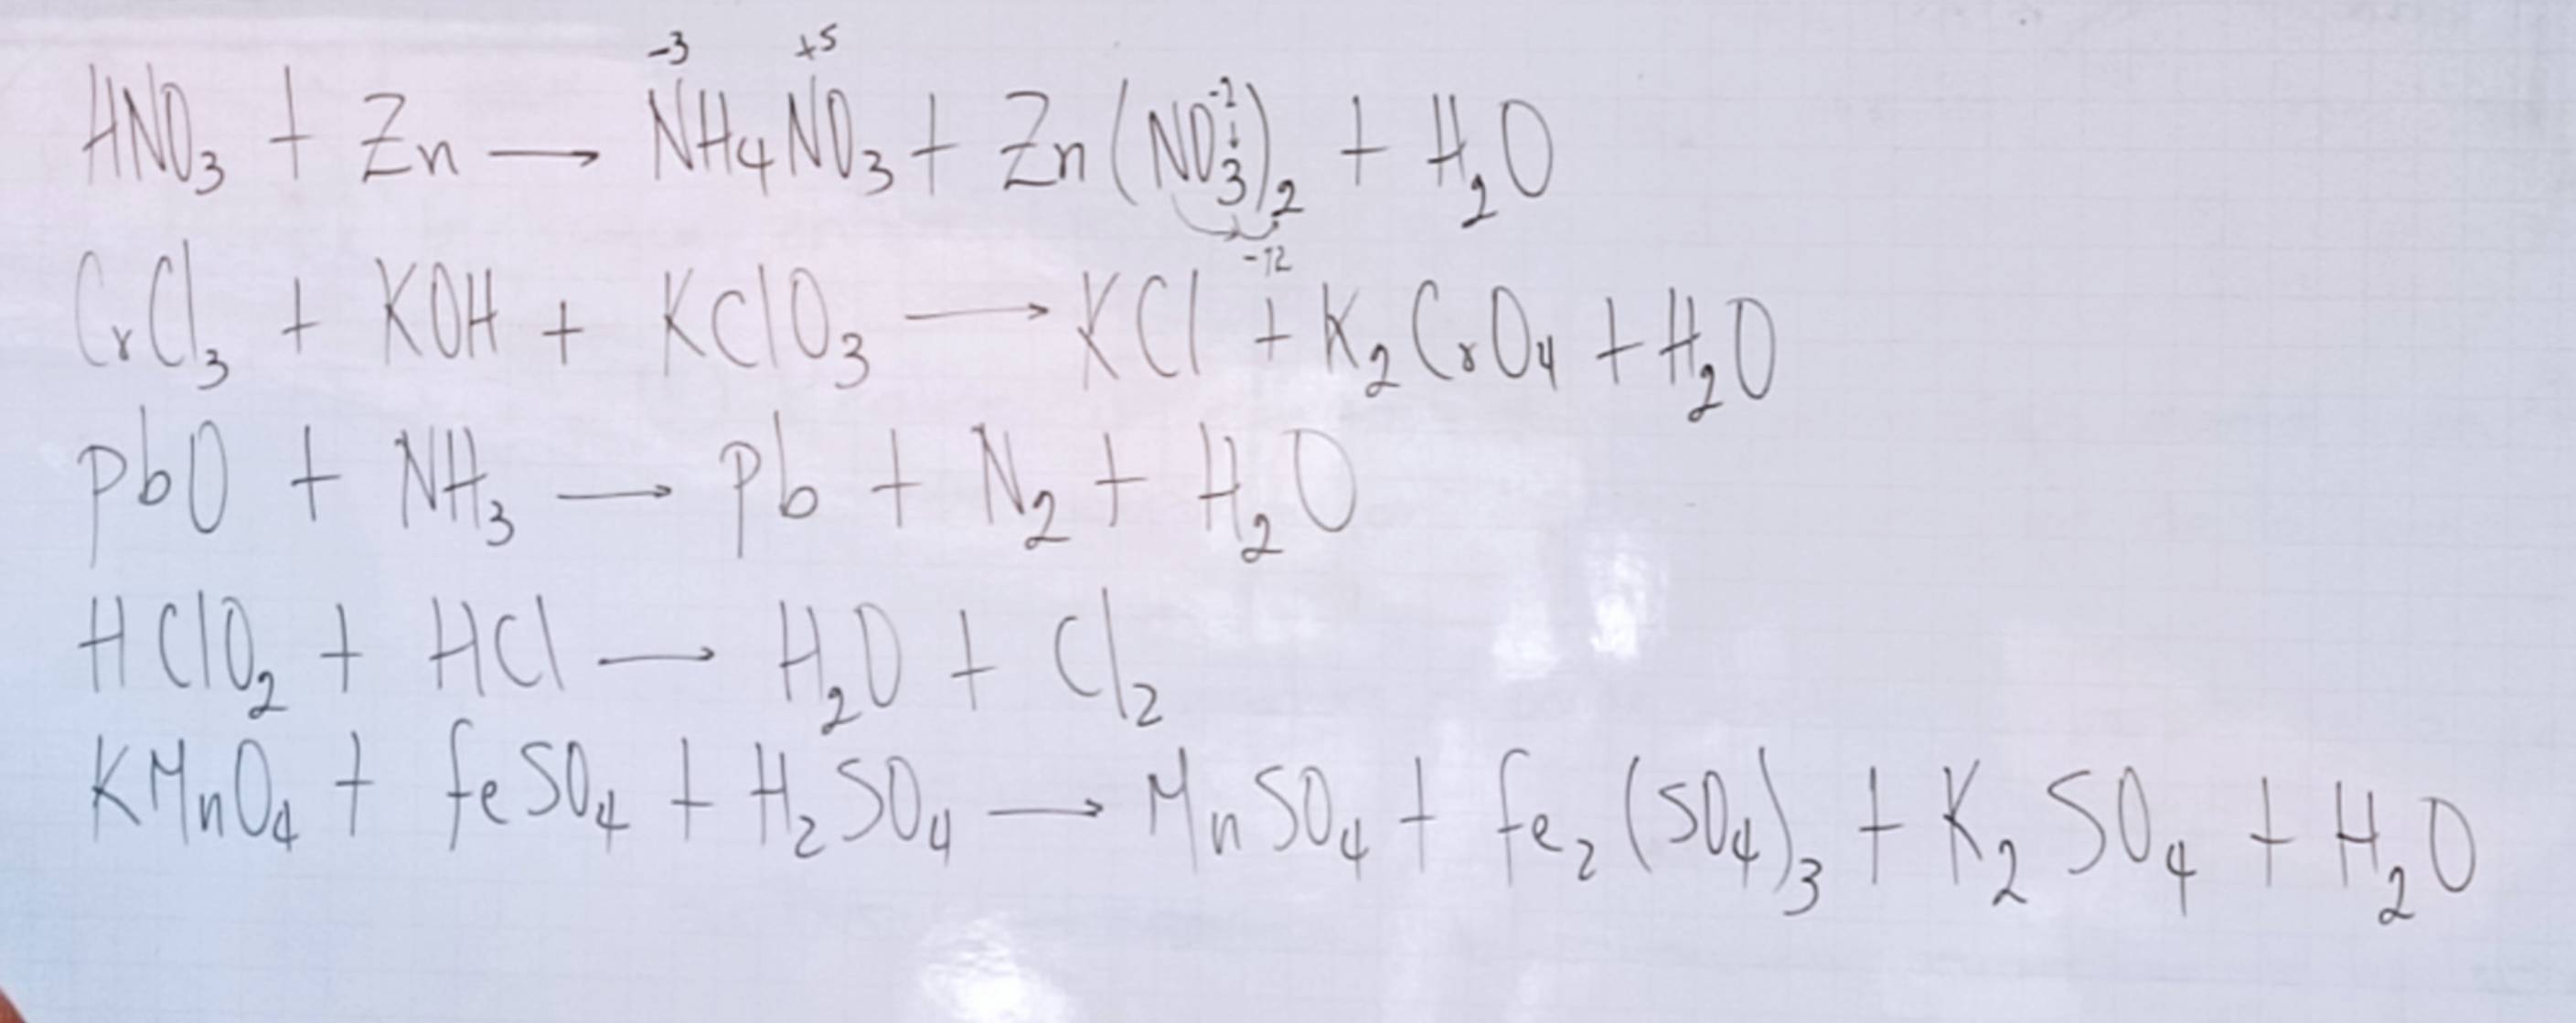 -3 +5
HNO3 + Zn → NH4NO3 + Zn(NO3)2 + H2O
-2
-12
CrCl3 + KOH + KClO3 → KCl + K2CrO4 + H2O
PbO + NH3 → Pb + N2 + H2O
HClO2 + HCl → H2O + Cl2
KMnO4 + FeSO4 + H2SO4 → MnSO4 + Fe2(SO4)3 + K2SO4 + H2O